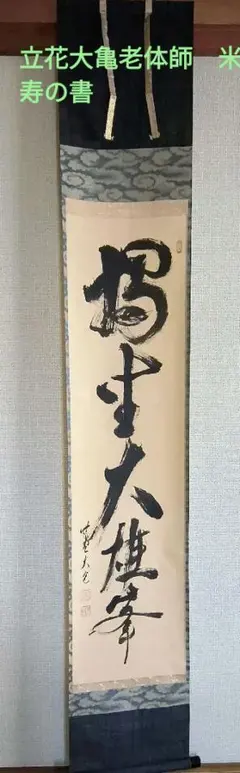 立花大亀老体師　米
寿の書
独坐大雄峯